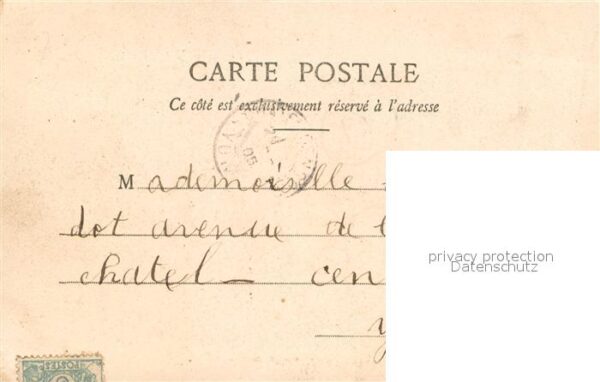 CARTE POSTALE
Ce côté est exclusivement réservé à l'adresse
Mademoiselle
dot avenue de
chatel - cen
privacy protection
Datenschutz
POSTES